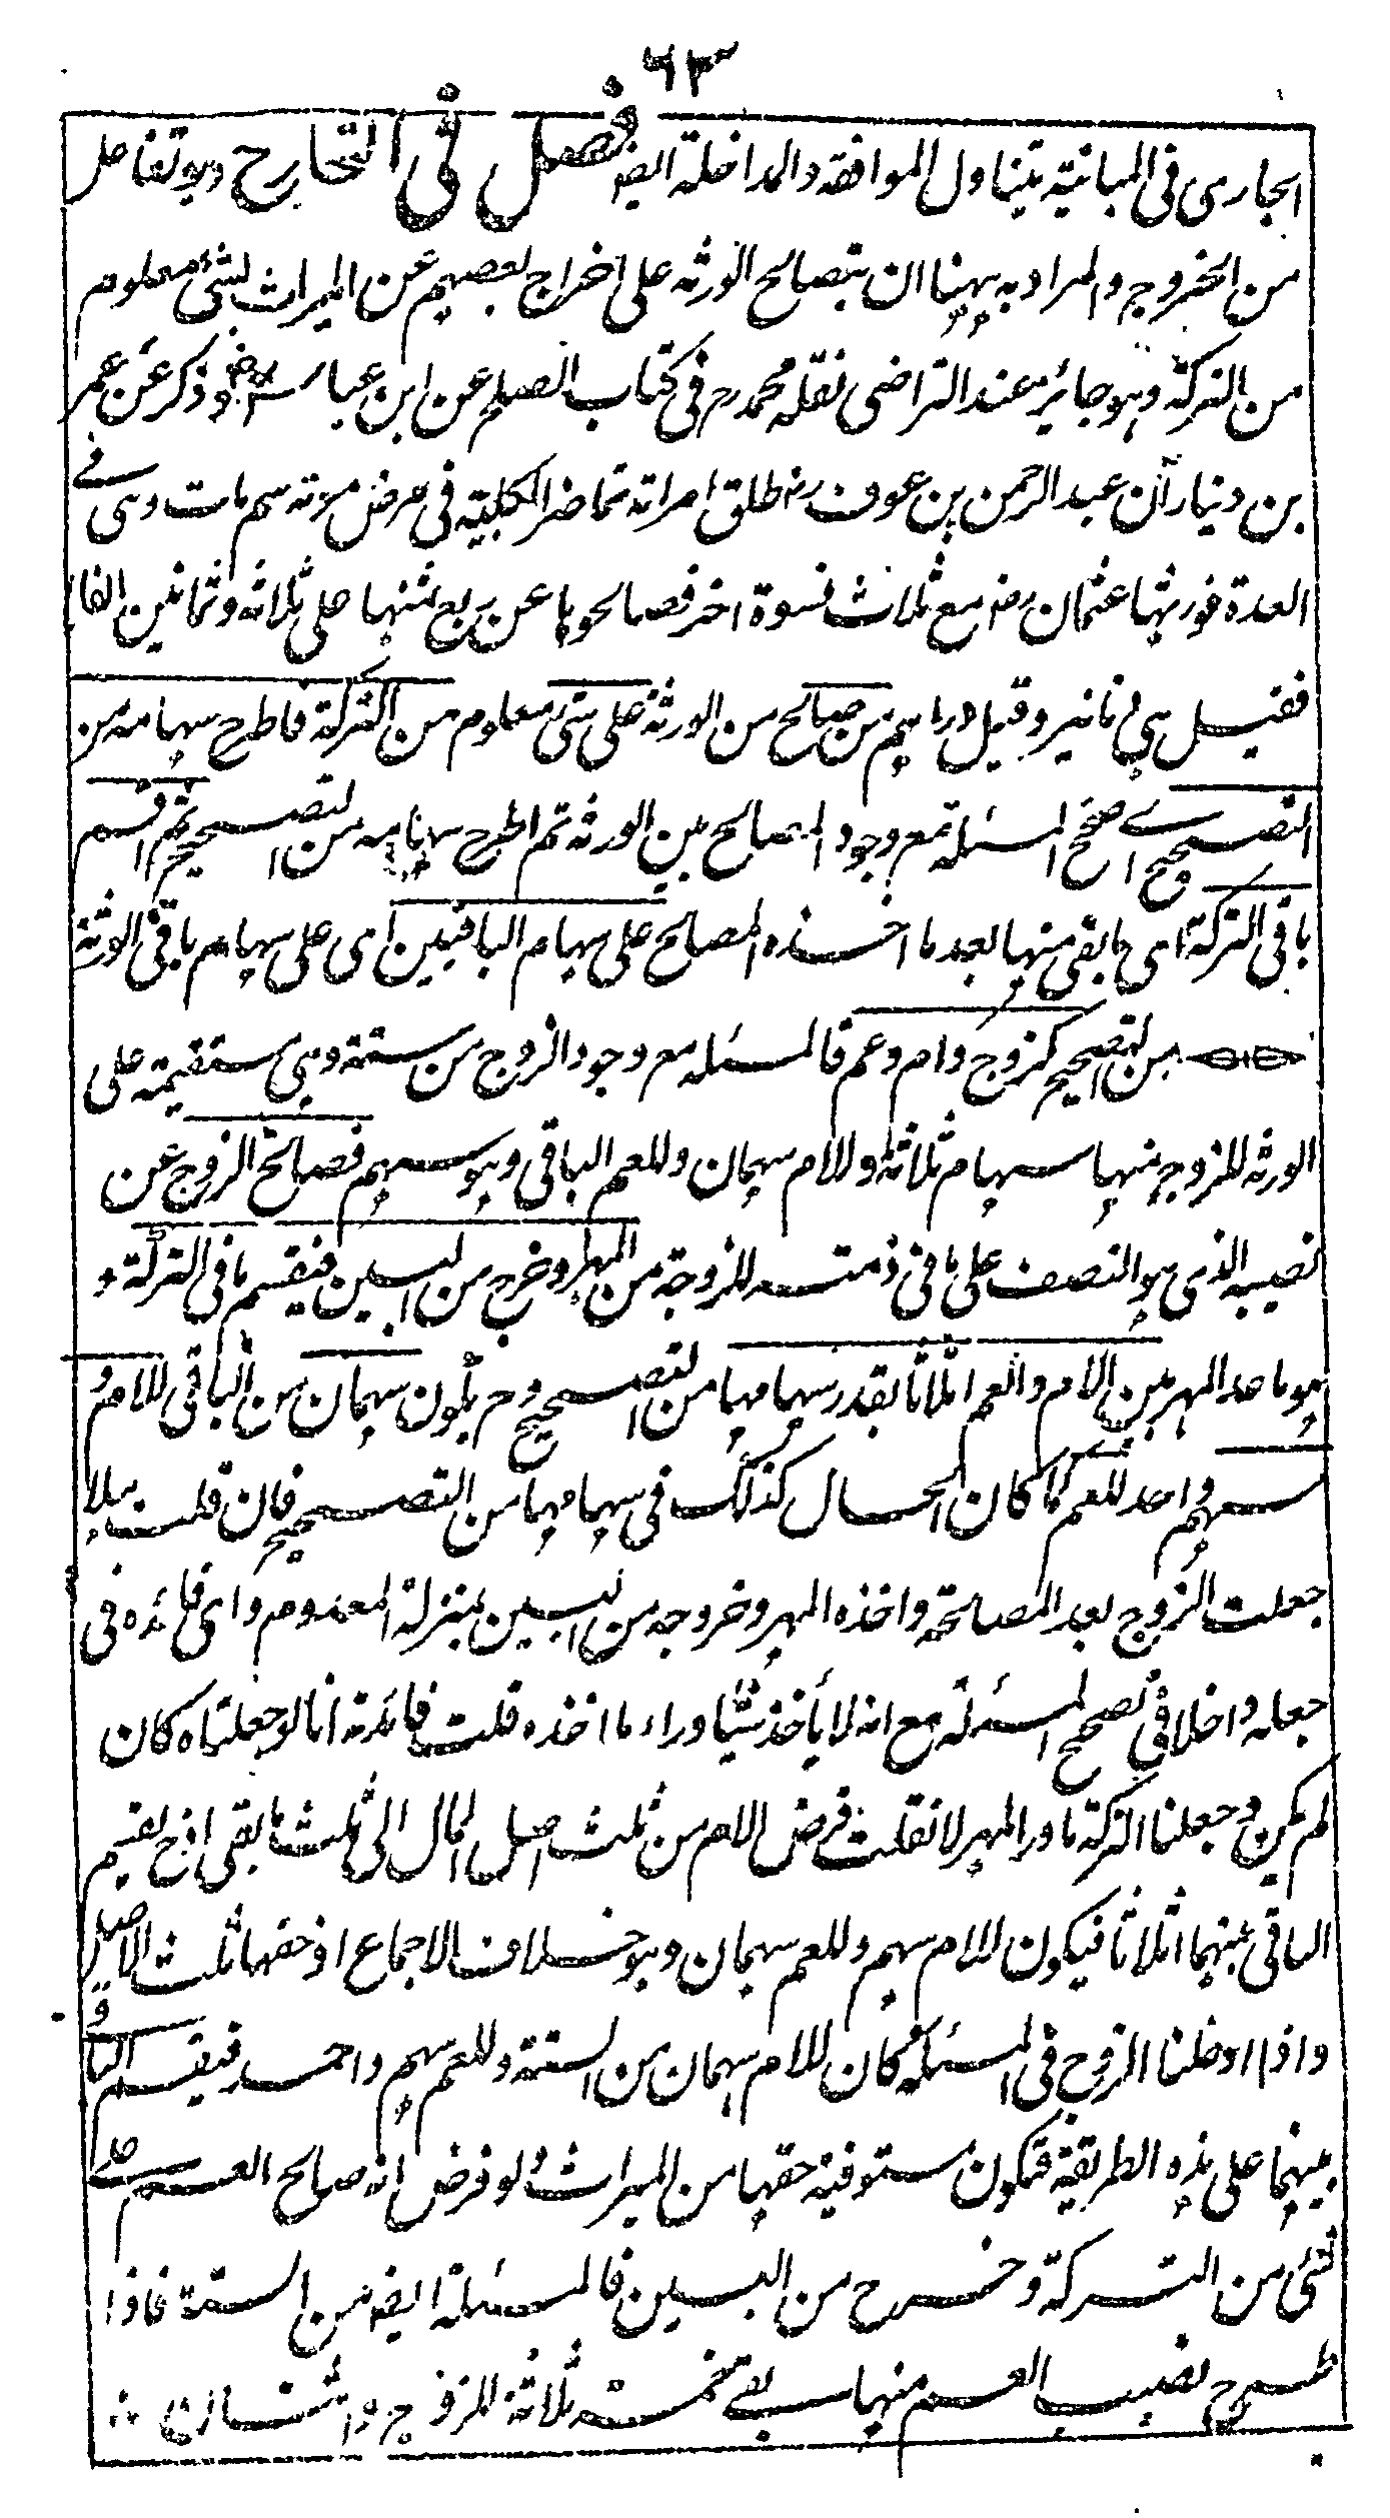 ٦٣
الجاری فی المباینة یتناول الموافقة والمداخلة ایضا فصل فی التخارج وهو تفاعل
من الخروج والمراد به ههنا ان یتصالح الورثه علی اخراج بعضهم عن المیراث بشئ معلوم
من الترکة وهو جائز عند التراضی نقله محمد رح فی کتاب الصلح عن ابن عباس رض وذکر عن عمر
بن دینار ان عبد الرحمن بن عوف رض طلق امراته تماضر الکلبیة فی مرض موته ثم مات وهی فے
العدة فورثها عثمان رض مع ثلاث نسوة اخر فصالحوها عن ربع ثمنها علی ثلاثة وثمانین الفا
فقیل هی دنانیر وقیل دراهم من صالح من الورثة علی شئ معلوم من الترکة فاطرح سهامه من
التصحیح اے صحح المسئلة مع وجود المصالح بین الورثه ثم اطرح سهامه من التصحیح ثم اقسم
باقی الترکة ای ما بقی منها بعد ما اخذه المصالح علی سهام الباقین ای علی سهام باقی الورثة
من التصحیح کزوج وام وعم فالمسئله مع وجود الزوج من ستة وهی مستقیمة علی
الورثه للزوج منها سهام ثلاثة وللام سهمان وللعم الباقی وهو سهم فصالح الزوج عن
نصیبه الذی هو النصف علی ما فی ذمته للزوجة من المهر وخرج من البین فیقسم باقی الترکة و
هو ما عدا المهر بین الام والعم اثلاثا بقدر سهامهما من التصحیح وح یکون سهمان من الباقی للام و
سهم واحد للعم کما کان الحال کذلک فی سهامهما من التصحیح فان قلت هلا
جعلت الزوج بعد المصالحة واخذه المهر وخروجه من البین بمنزلة المعدوم وای فائده فی
جعله داخلا فی تصحیح المسئلة مع انه لا یأخذ شیئا وراء ما اخذه قلت فائدته انا لو جعلناه کان
لم یکن وجعلنا الترکة ما ورا المهر لانقلب فرض الام من ثلث اصل المال الی ثلث ما بقی اذ ح یقسم
الباقی بینهما اثلاثا فیکون للام سهم وللعم سهمان وهو خلاف الاجماع اذ حقها ثلث الاصل
واذا ادخلنا الزوج فی المسئلة کان للام سهمان من الستة وللعم سهم واحد فیقسم الباقی
بینهما علی هذه الطریقة فتکون مستوفیة حقها من المیراث ولو فرض انه صالح العم علے
شئ من الترکة وخرج من البین فالمسئلة ایضا من الستة فاذا
طرح نصیب العم منها بقے خمسة ثلاثة للزوج واثنان